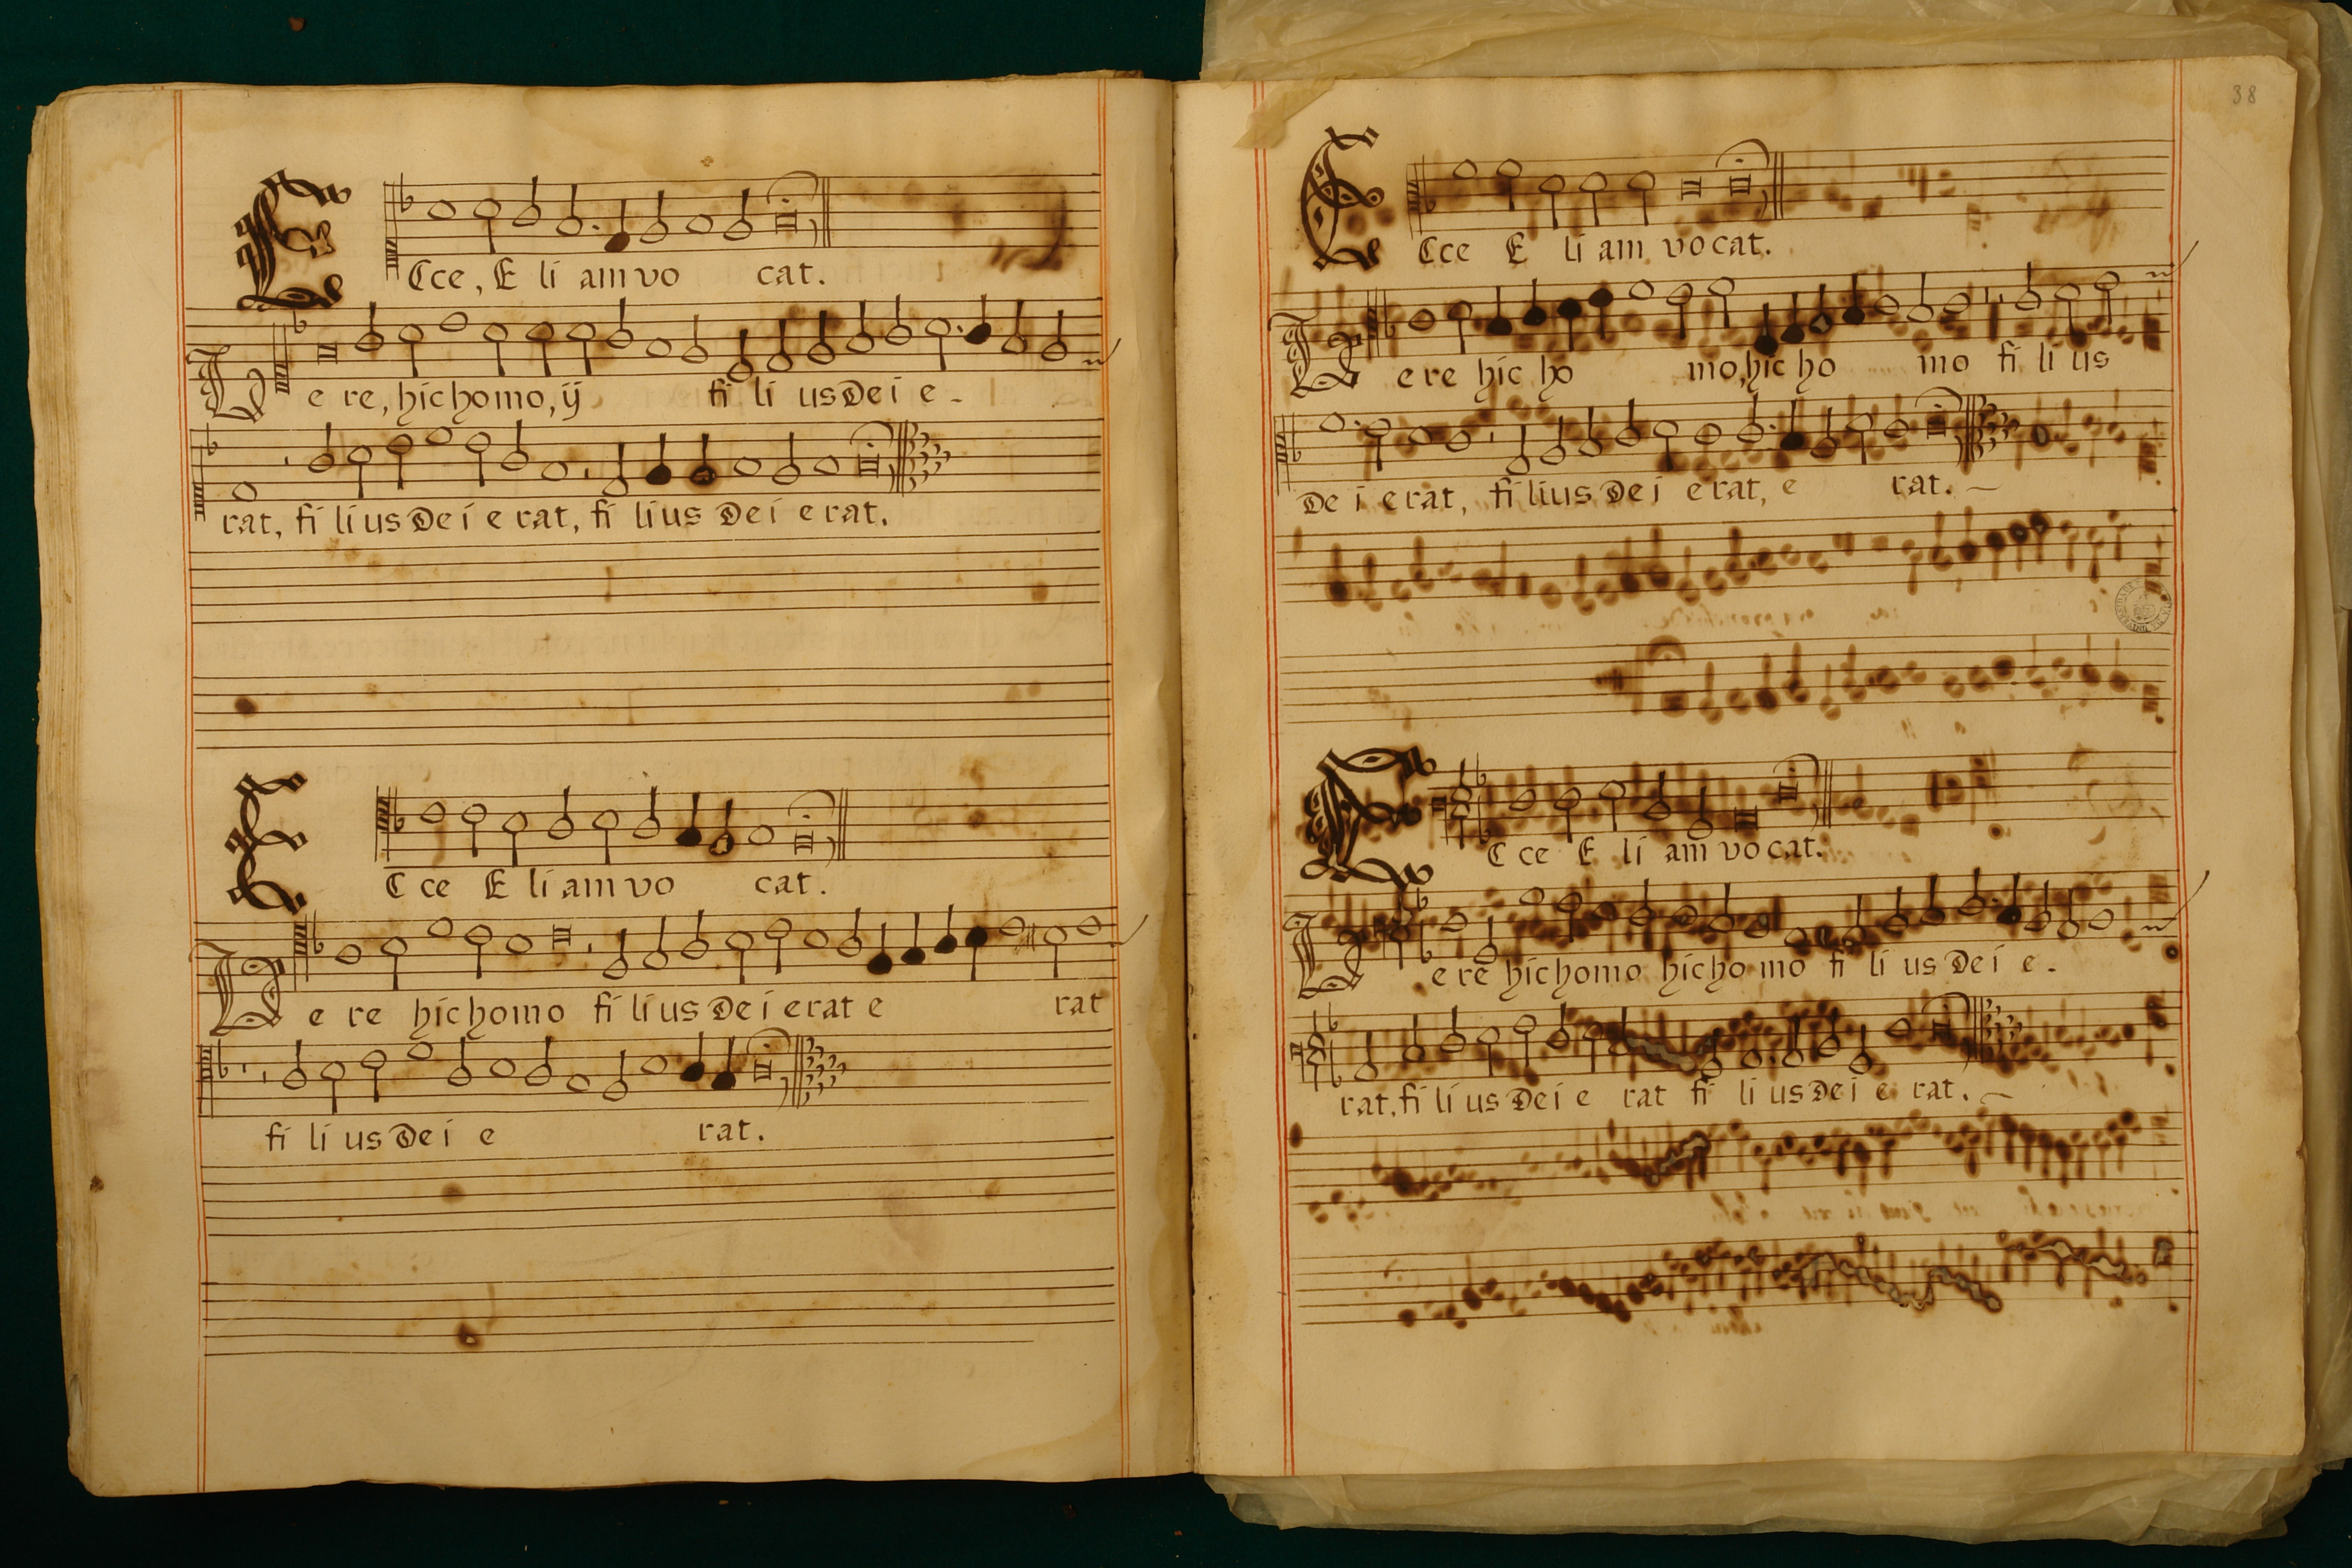 Ecce, E li am vo cat.
Vere, hic homo, ij fi li us Dei e-
rat, fi li us De i e rat, fi li us De i e rat.
Ecce E li am vo cat.
Ve re hic homo fi li us De i erat e rat
fi li us De i e rat.
38
Ecce E li am vocat.
Vere hic ho mo, hic ho mo fi li us
De i erat, fi lius Dei erat, e rat.
Ecce E li am vocat.
Vere hic homo hic ho mo fi li us De i e-
rat, fi li us De i e rat fi li us De i e rat.